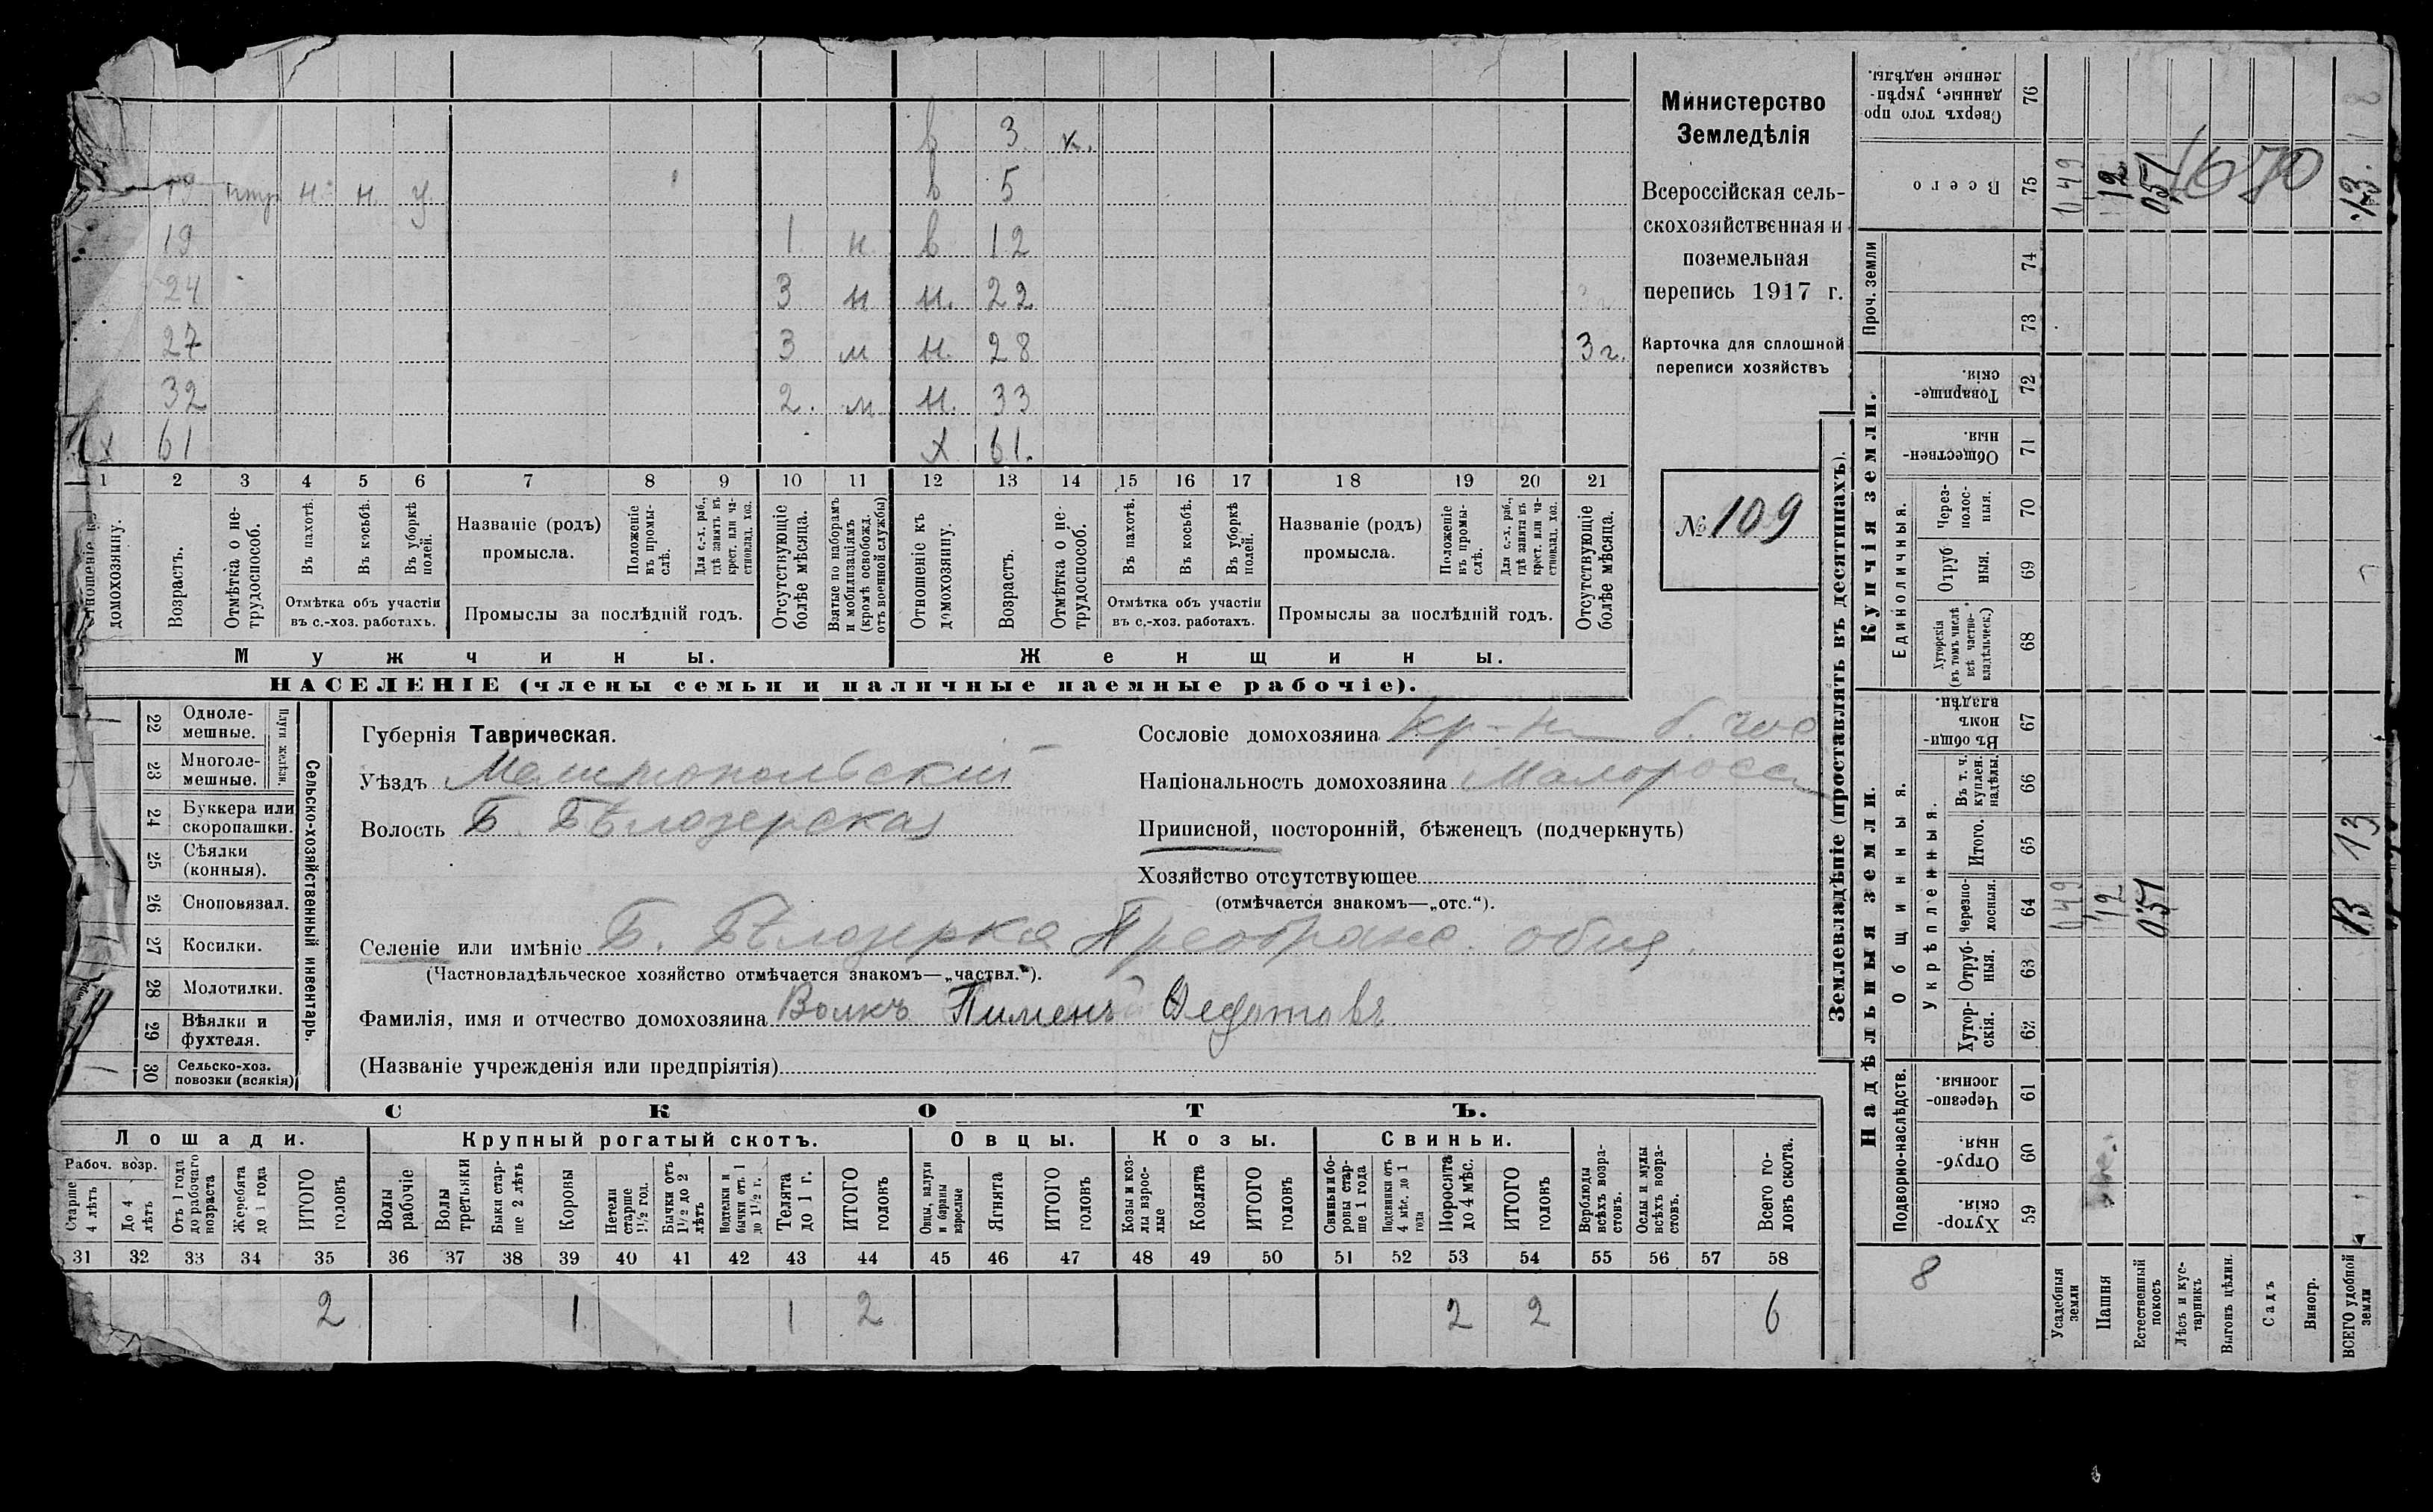 3 х.
19 н. н. у. в 5
19 1 н в 12
24 3 н н. 22
27 3 м н. 28 3 г.
32 2. м н. 33
х 61 х 61.
1 2 3 4 5 6 7 8 9 10 11 12 13 14 15 16 17 18 19 20 21
домохозяину.
Возрастъ.
Отмѣтка о не-
трудоспособ.
Въ пахотѣ.
Въ косьбѣ.
Въ уборкѣ
полей.
Отмѣтка объ участіи
въ с.-хоз. работахъ.
Названіе (родъ)
промысла.
Положеніе
въ промы-
слѣ.
Для с.-х. раб.,
гдѣ занятъ въ
крест. или ча-
стновлад. хоз.
Промыслы за послѣдній годъ.
Отсутствующіе
болѣе мѣсяца.
Взятые по наборамъ
и мобилизаціямъ
(кромѣ освобожд.
отъ военной службы)
Отношеніе къ
домохозяину.
Возрастъ.
Отмѣтка о не-
трудоспособ.
Въ пахотѣ.
Въ косьбѣ.
Въ уборкѣ
полей.
Отмѣтка объ участіи
въ с.-хоз. работахъ.
Названіе (родъ)
промысла.
Положеніе
въ промы-
слѣ.
Для с.-х. раб.,
гдѣ занята въ
крест. или ча-
стновлад. хоз.
Промыслы за послѣдній годъ.
Отсутствующіе
болѣе мѣсяца.
Мужчины.
Женщины.
НАСЕЛЕНІЕ (члены семьи и наличные наемные рабочіе).
Министерство
Земледѣлія
Всероссійская сель-
скохозяйственная и
поземельная
перепись 1917 г.
Карточка для сплошной
переписи хозяйствъ
№ 109
22 Одноле-
мешные.
23 Многоле-
мешные.
24 Буккера или
скоропашки.
25 Сѣялки
(конныя).
26 Сноповязал.
27 Косилки.
28 Молотилки.
29 Вѣялки и
фухтеля.
30 Сельско-хоз.
повозки (всякія)
Сельско-хозяйственный инвентарь.
Губернія Таврическая.
Уѣздъ Мелитопольскій
Волость Б. Бѣлозерская
Селеніе или имѣніе Б. Бѣлозерка Преображ. общ.
(Частновладѣльческое хозяйство отмѣчается знакомъ—„частвл.“).
Фамилія, имя и отчество домохозяина Волкъ Пименъ Федотовъ
(Названіе учрежденія или предпріятія)
Сословіе домохозяина кр-нъ б. гос
Національность домохозяина Малоросс
Приписной, посторонній, бѣженецъ (подчеркнуть)
Хозяйство отсутствующее
(отмѣчается знакомъ—„отс.“).
СКОТЪ.
Лошади. Крупный рогатый скотъ. Овцы. Козы. Свиньи.
Рабоч. возр.
Старше
4 лѣтъ
До 4
лѣтъ
Отъ 1 года
до рабочаго
возраста
Жеребята
до 1 года
ИТОГО
головъ
Волы
рабочіе
Волы
третьяки
Быки стар-
ше 2 лѣтъ
Коровы
Нетели
старше
1½ год.
Бычки отъ
1½ до 2
лѣтъ
бычки отъ 1
до 1½ г.
Телята
до 1 г.
ИТОГО
головъ
Овцы, валухи
и бараны
взрослые
Ягнята
ИТОГО
головъ
Козы и коз-
лы взрос-
лые
Козлята
ИТОГО
головъ
Свиньи и бо-
ровы стар-
ше 1 года
Подсвинки отъ
4 мѣс. до 1
года
Поросята
до 4 мѣс.
ИТОГО
головъ
Верблюды
всѣхъ возра-
стовъ.
Ослы и мулы
всѣхъ возра-
стовъ.
Всего го-
ловъ скота.
31 32 33 34 35 36 37 38 39 40 41 42 43 44 45 46 47 48 49 50 51 52 53 54 55 56 57 58
2 1 1 2 2 2 6
Землевладѣніе (проставлять въ десятинахъ).
Надѣльныя земли.
Купчія земли.
Проч. земли
Подворно-наслѣдств.
Общинныя.
Укрѣпленныя.
Единоличныя.
Хутор-
скія. 59
Отруб-
ныя. 60
Черезпо-
лосныя. 61
Хутор-
скія. 62
Отруб-
ныя. 63
Черезпо-
лосныя. 64
Итого. 65
Въ т. ч.
куплен.
надѣлы. 66
Въ общин-
номъ
владѣн. 67
Хуторскія
(въ томъ числѣ
всѣ частно-
владѣльческ.) 68
Отруб
ныя. 69
Через-
полос-
ныя. 70
Обществен-
ныя. 71
Товарище-
скія. 72
73
74
Всего 75
Сверхъ того про
данные, укрѣп-
ленные надѣлы. 76
8
Усадебныя
земли 049 049
Пашня 12 12
Естественный
покосъ 051 051
Лѣсъ и кус-
тарникъ
Выгонъ цѣлин.
Садъ
Виногр.
ВСЕГО удобной
земли 13 13 13.
1670